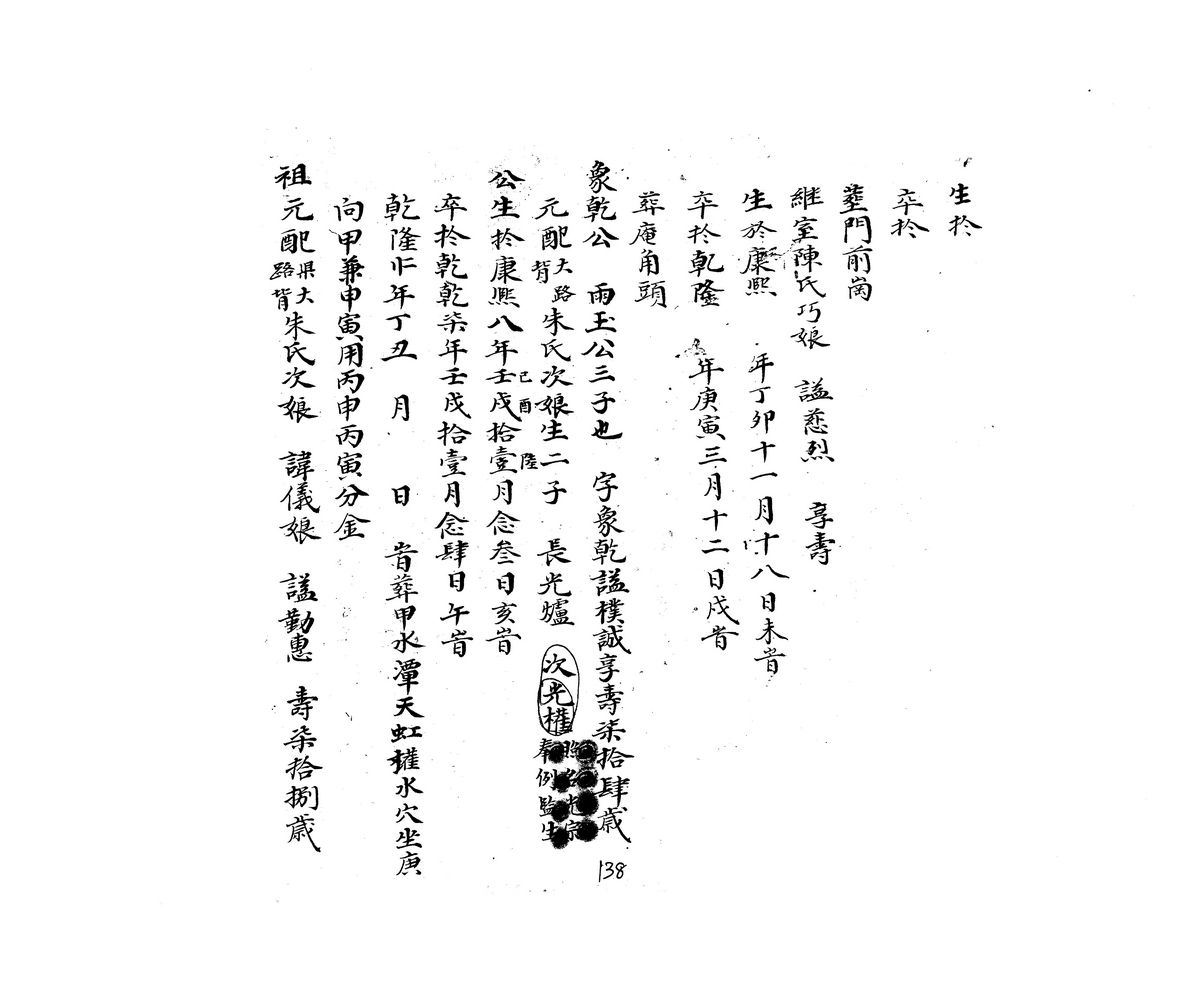 生扵
卒扵
塟門前崗
継室陳氏巧娘 謚慈烈 享壽
生於康熙 年丁卯十一月十八日未旹
卒扵乾隆 年庚寅三月十二日戍旹
葬庵角頭
象乾公 雨玉公三子也 字象乾謚樸誠享壽柒拾肆歲
元配大路背朱氏次娘生二子 長光爐 次光權 名光宗奉例監生
己酉 陸
公生扵康熙八年壬戍拾壹月念叁日亥旹
卒扵乾乾柒年壬戍拾壹月念肆日午旹
乾隆 年丁丑 月 日 旹葬甲水潭天虹權水穴坐庚
向甲兼申寅用丙申丙寅分金
祖元配 大路背朱氏次娘 諱儀娘 謚勤惠 壽柒拾捌歲
138